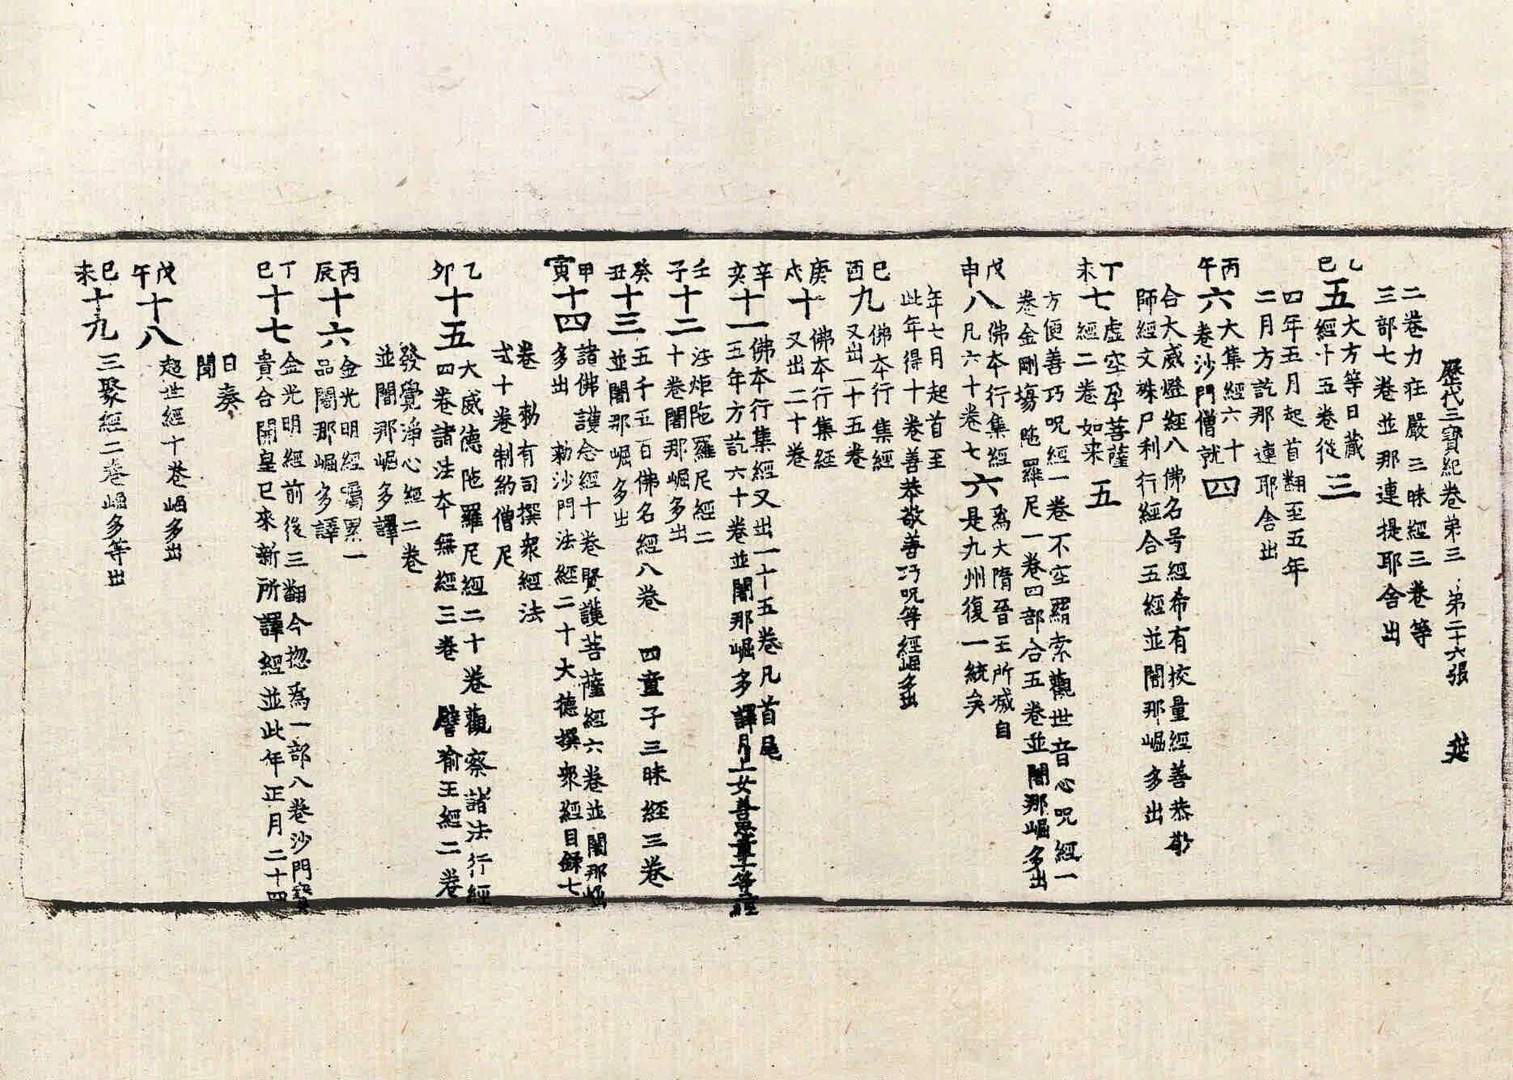 歷代三寶紀卷第三 第二十六張
二卷力莊嚴三昧經三卷等
三部七卷並那連提耶舍出
乙巳 五 大方等日藏
經十五卷從 三
四年五月起首翻至五年
二月方訖那連耶舍出
丙午 六 大集經六十
卷沙門僧就 四
合大威燈經八佛名号經希有挍量經善恭敬
師經文殊尸利行經合五經並闍那崛多出
丁未 七 虛空孕菩薩
經二卷如來 五
方便善巧呪經一卷不空羂索觀世音心呪經一
卷金剛塲陁羅尼一卷四部合五卷並闍那崛多出
戊申 八 佛本行集經
凡六十卷七 六
爲大隋晉王所滅自
是九州復一統矣
年七月起首至
此年得十卷善恭敬善巧呪等經崛多出
巳酉 九 佛本行集經
又出一十五卷
庚戌 十 佛本行集經
又出二十卷
辛亥 十一 佛本行集經又出一十五卷凡首尾
五年方訖六十卷並闍那崛多譯月上女善思童子等經
壬子 十二 法炬陁羅尼經二
十卷闍那崛多出
癸丑 十三 五千五百佛名經八卷 四童子三昧經三卷
並闍那崛多出
甲寅 十四 諸佛護念經十卷賢護菩薩經六卷並闍那崛
多出 勑沙門法經二十大德撰衆經目錄七
卷 勑有司撰衆經法
式十卷制約僧尼
乙卯 十五 大威德陁羅尼經二十卷觀察諸法行經
四卷諸法本無經三卷 譬喻王經二卷
發覺淨心經二卷
並闍那崛多譯
丙辰 十六 金光明經囑累一
品闍那崛多譯
丁巳 十七 金光明經前後三翻今揔爲一部八卷沙門寶
貴合開皇已來新所譯經並此年正月二十四
日奏
聞
戊午 十八 起世經十卷崛多出
巳未 十九 三聚經二卷崛多等出